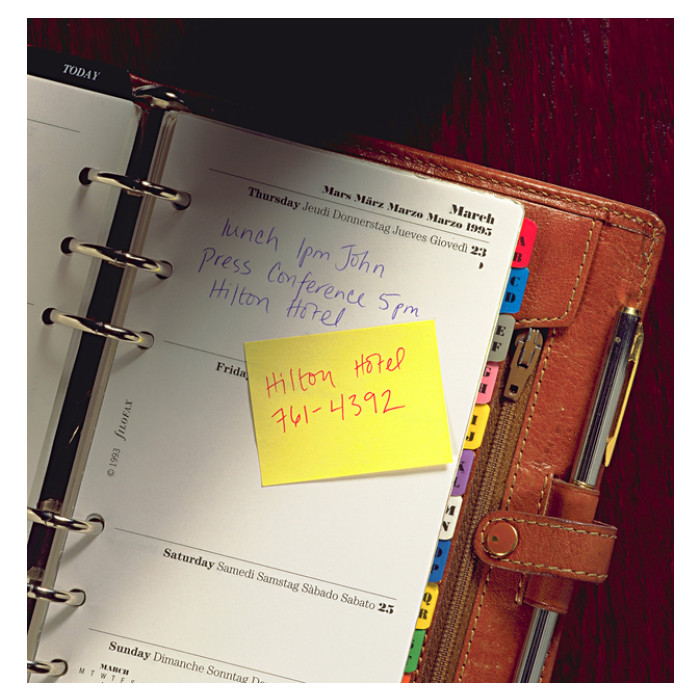 TODAY
March
Mars März Marzo Marzo 1995
Thursday Jeudi Donnerstag Jueves Giovedì 23
lunch 1pm John
Press Conference 5pm
Hilton Hotel
Friday
Hilton Hotel
761-4392
© 1993 FILOFAX
Saturday Samedi Samstag Sàbado Sabato 25
Sunday Dimanche Sonntag
MARCH
M T W T F S
A
B
C
D
E
F
G
H
I
J
K
L
M
N
O
P
Q
R